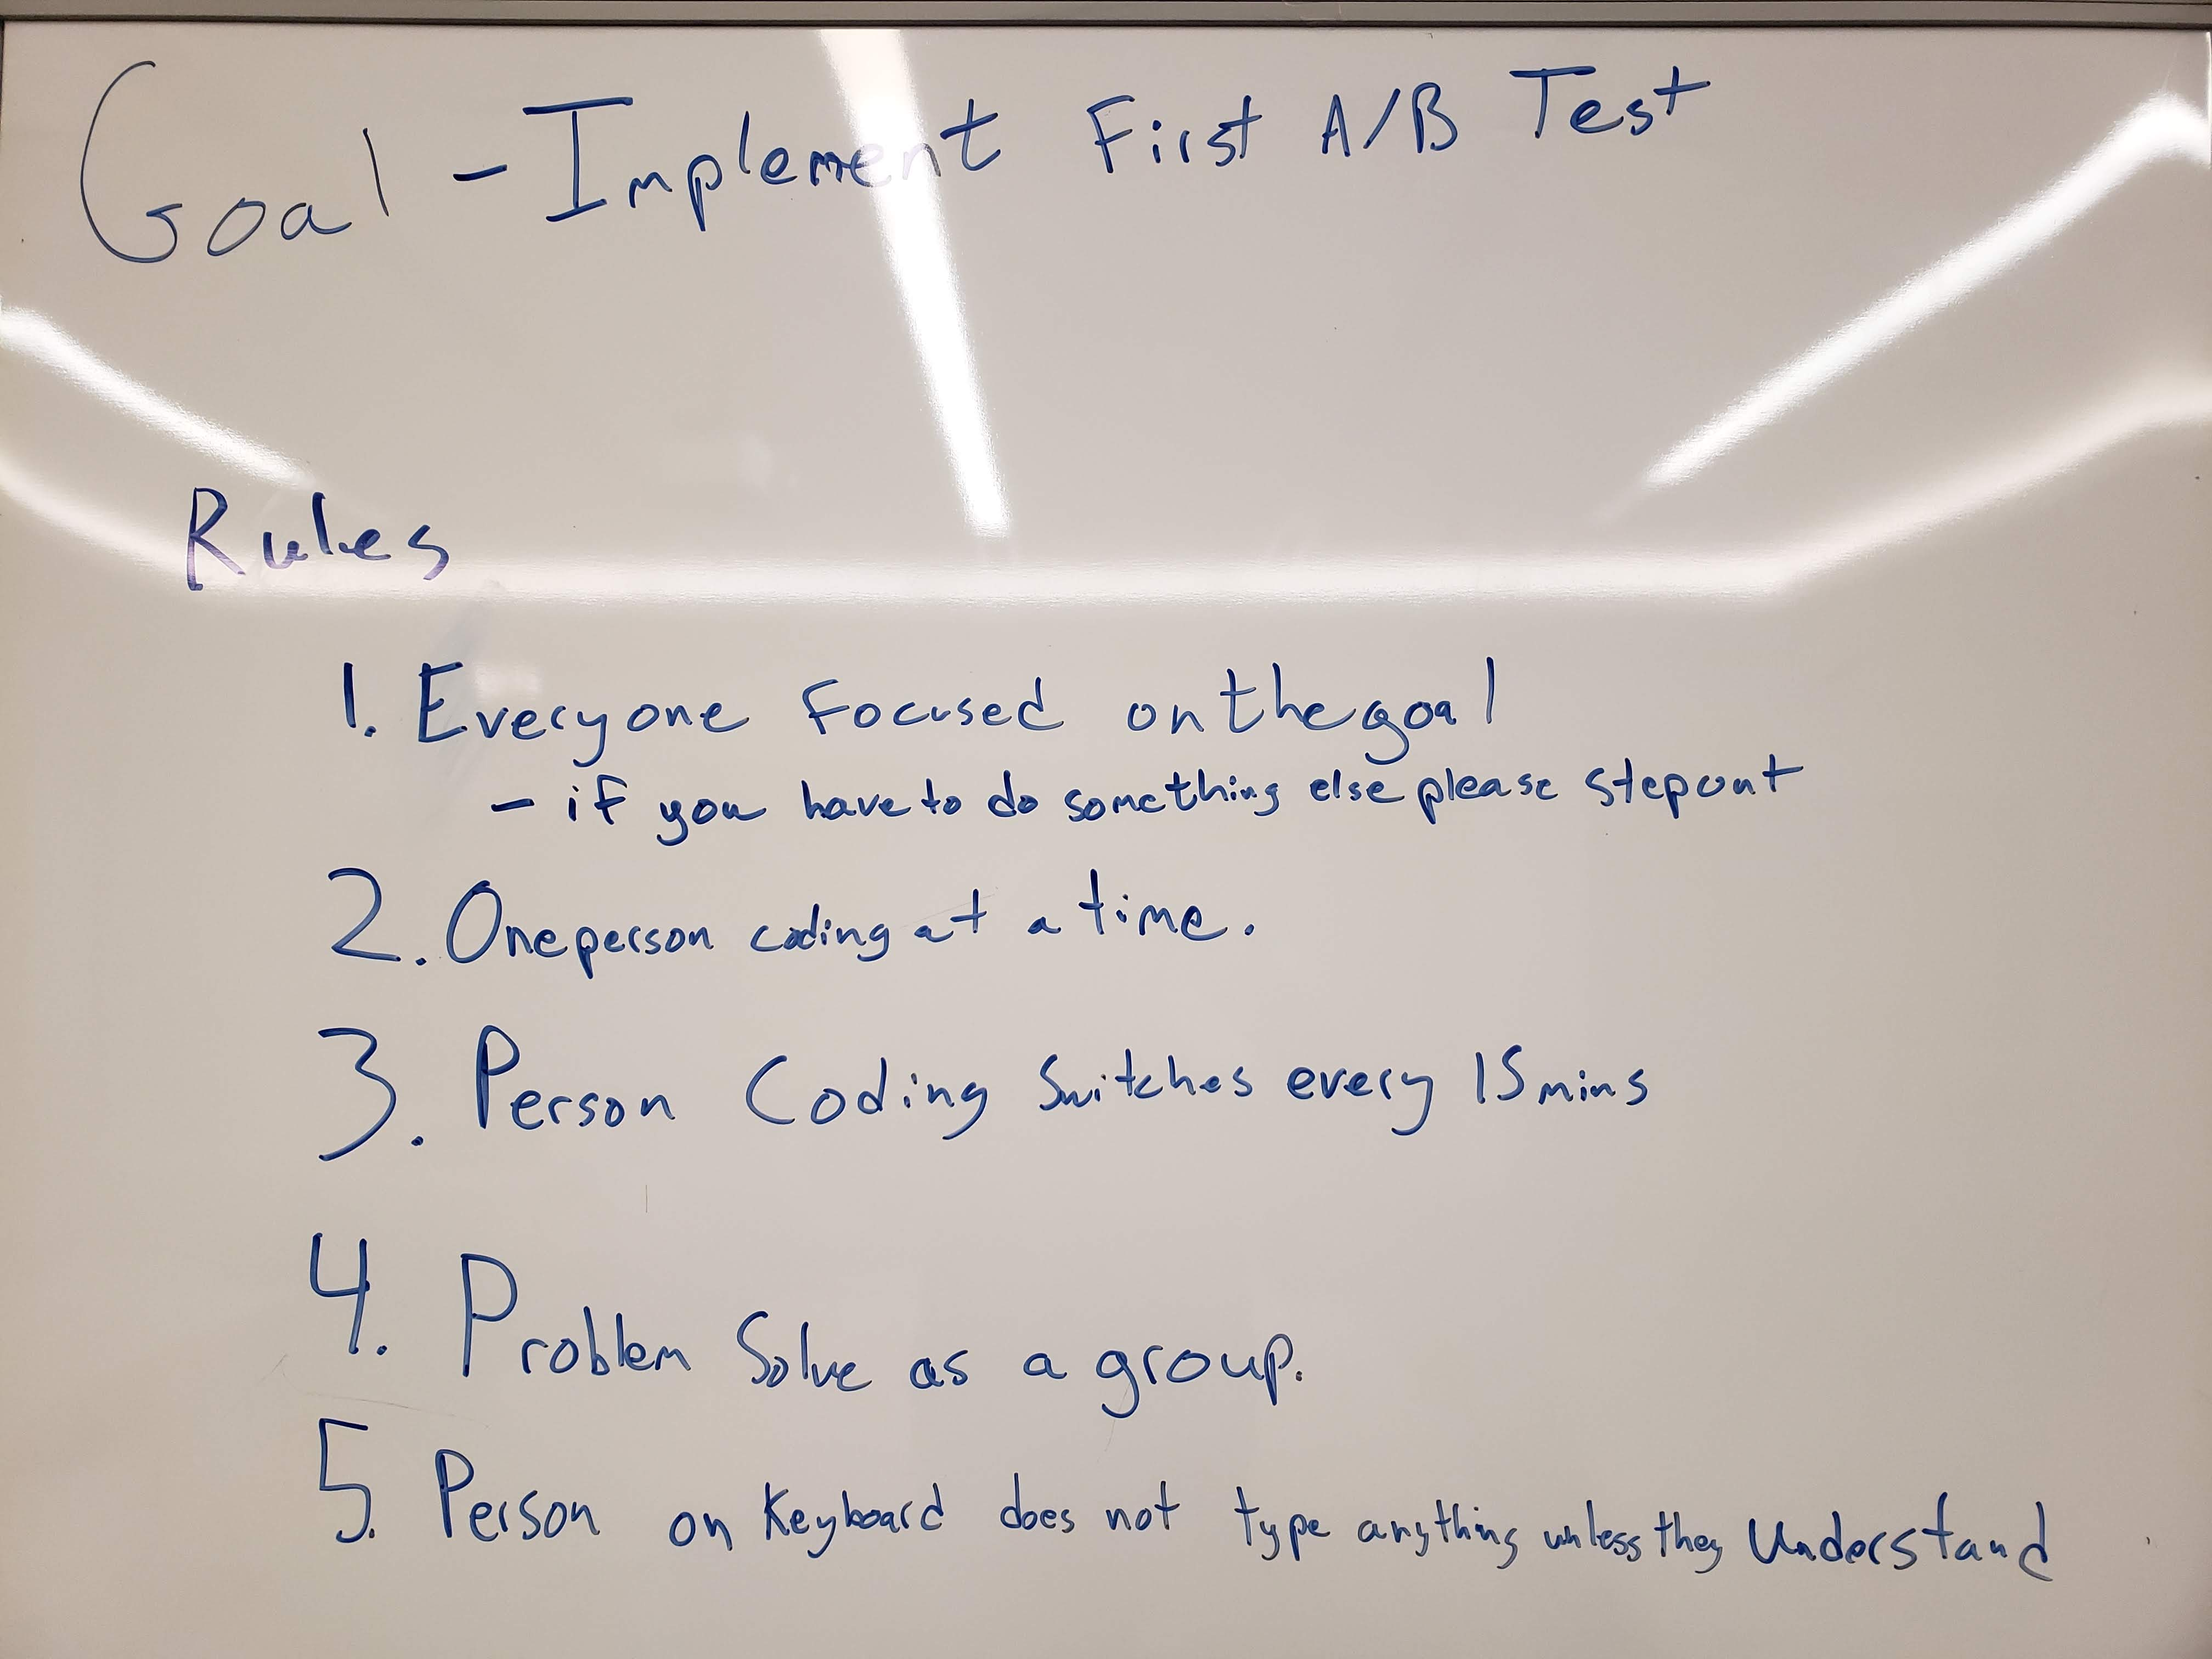 Goal - Implement First A/B Test
Rules
1. Everyone focused on the goal
- if you have to do something else please step out
2. One person coding at a time.
3. Person Coding Switches every 15 mins
4. Problem Solve as a group.
5. Person on Keyboard does not type anything unless they Understand